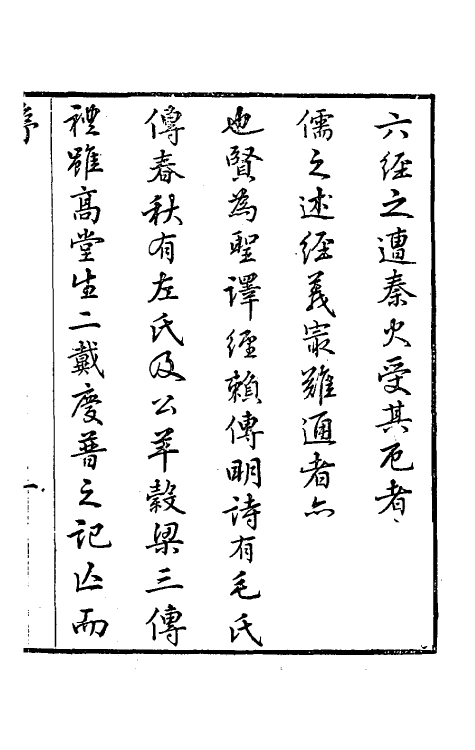 六經之遭秦火受其厄者
儒之述經義最難通者亦
也賢為聖譯經賴傳明詩有毛氏
傳春秋有左氏及公羊穀梁三傳
禮雖高堂生二戴慶普之記亡而
序
一